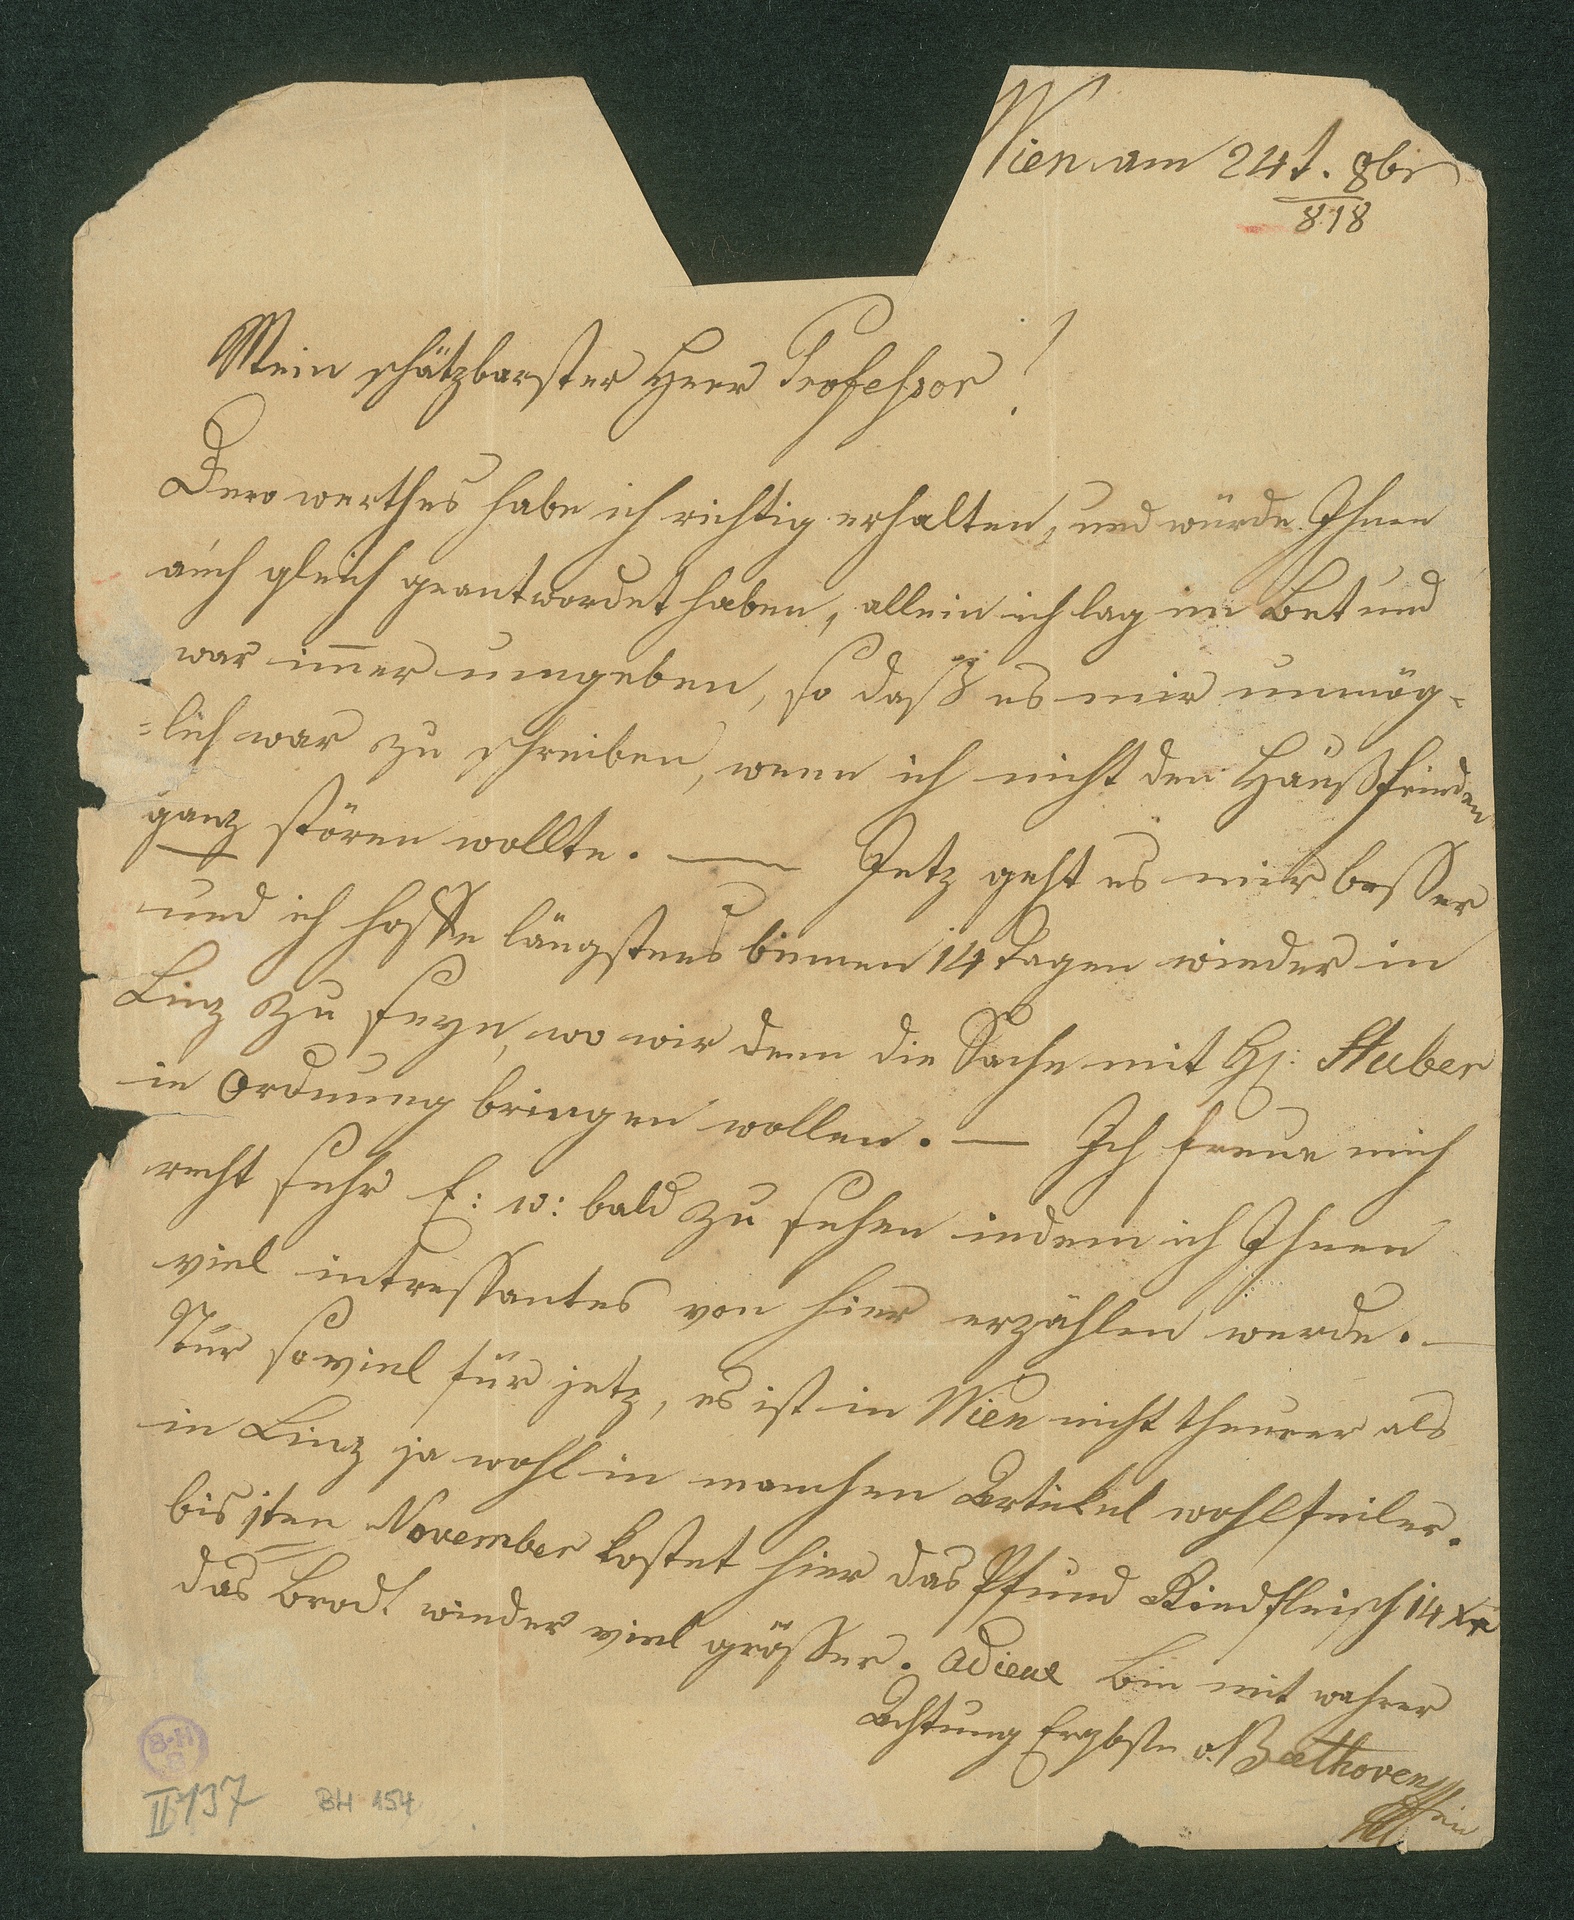 Wien am 24t. 8br
818
Mein schätzbarster Herr Professor!
Dero werthes habe ich richtig erhalten, und würde Ihnen
auch gleich geantwordet haben, allein ich lag im Bet und
war im̅er umgeben, so daß es mir unmög=
=lich war zu schreiben, wenn ich nicht den Haußfrieden
ganz stören wollte. — Jetz geht es mir besser
und ich hoffe längstens binnen 14 Tagen wieder in
Linz zu seyn, wo wir denn die Sache mit H: Stuber
in Ordnung bringen wollen. — Ich freue mich
recht sehr E: w: bald zu sehen indem ich Ihnen
viel intressantes von hier erzählen werde. —
Nur soviel für jetz, es ist in Wien nicht theurer als
in Linz ja wohl in manchen Artickel wohlfeiler.
bis 1ten November kostet hier das Pfund Rindfleisch 14 xr
das Brodt wieder viel grösser. Adieue bin mit wahrer
Achtung Ergbste v. Beethoven
B-H
B
II 137
BH 154